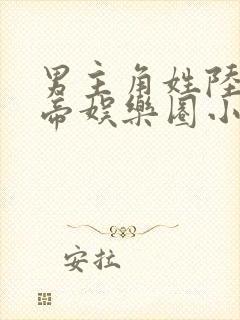 男主角姓陸
帝娛樂圈小
安拉